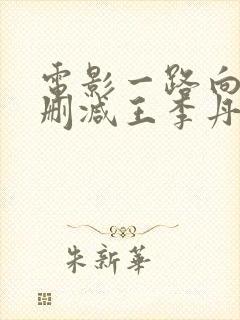 電影一路向
刪減王李丹
朱新華